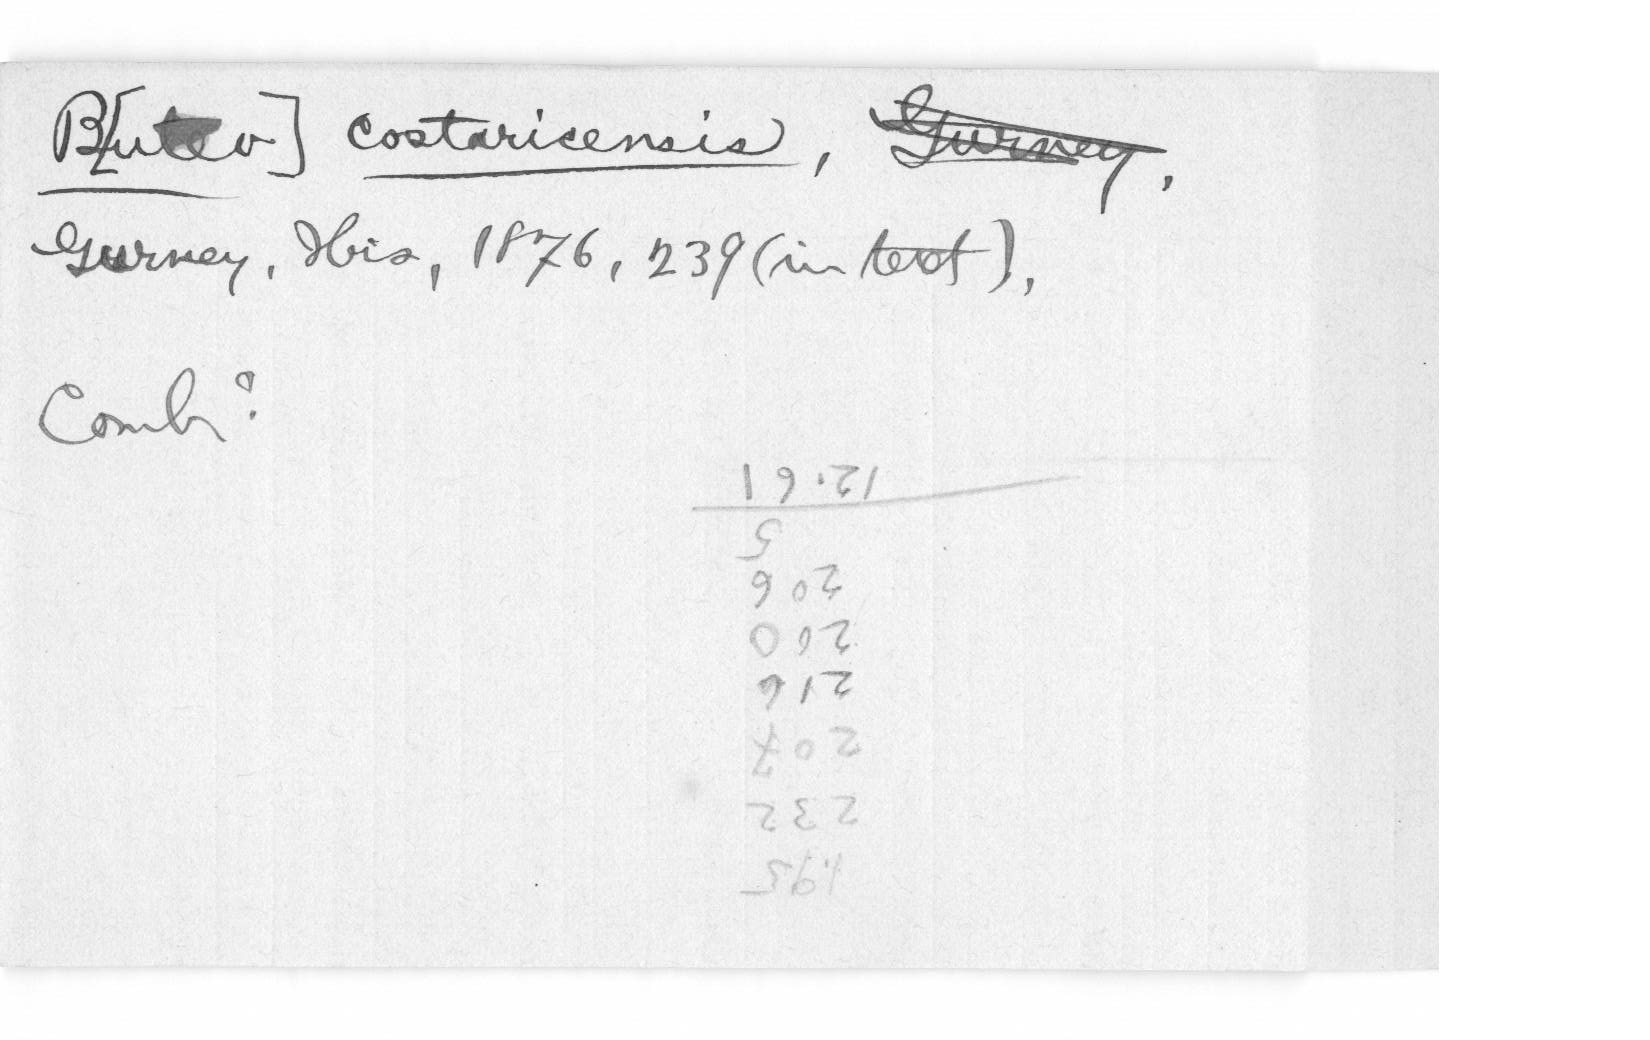 B[uteo] costaricensis, Gurney,
Gurney, Ibis, 1876, 239 (in text),
Comb?
1.95
232
207
216
200
206
5
12.61